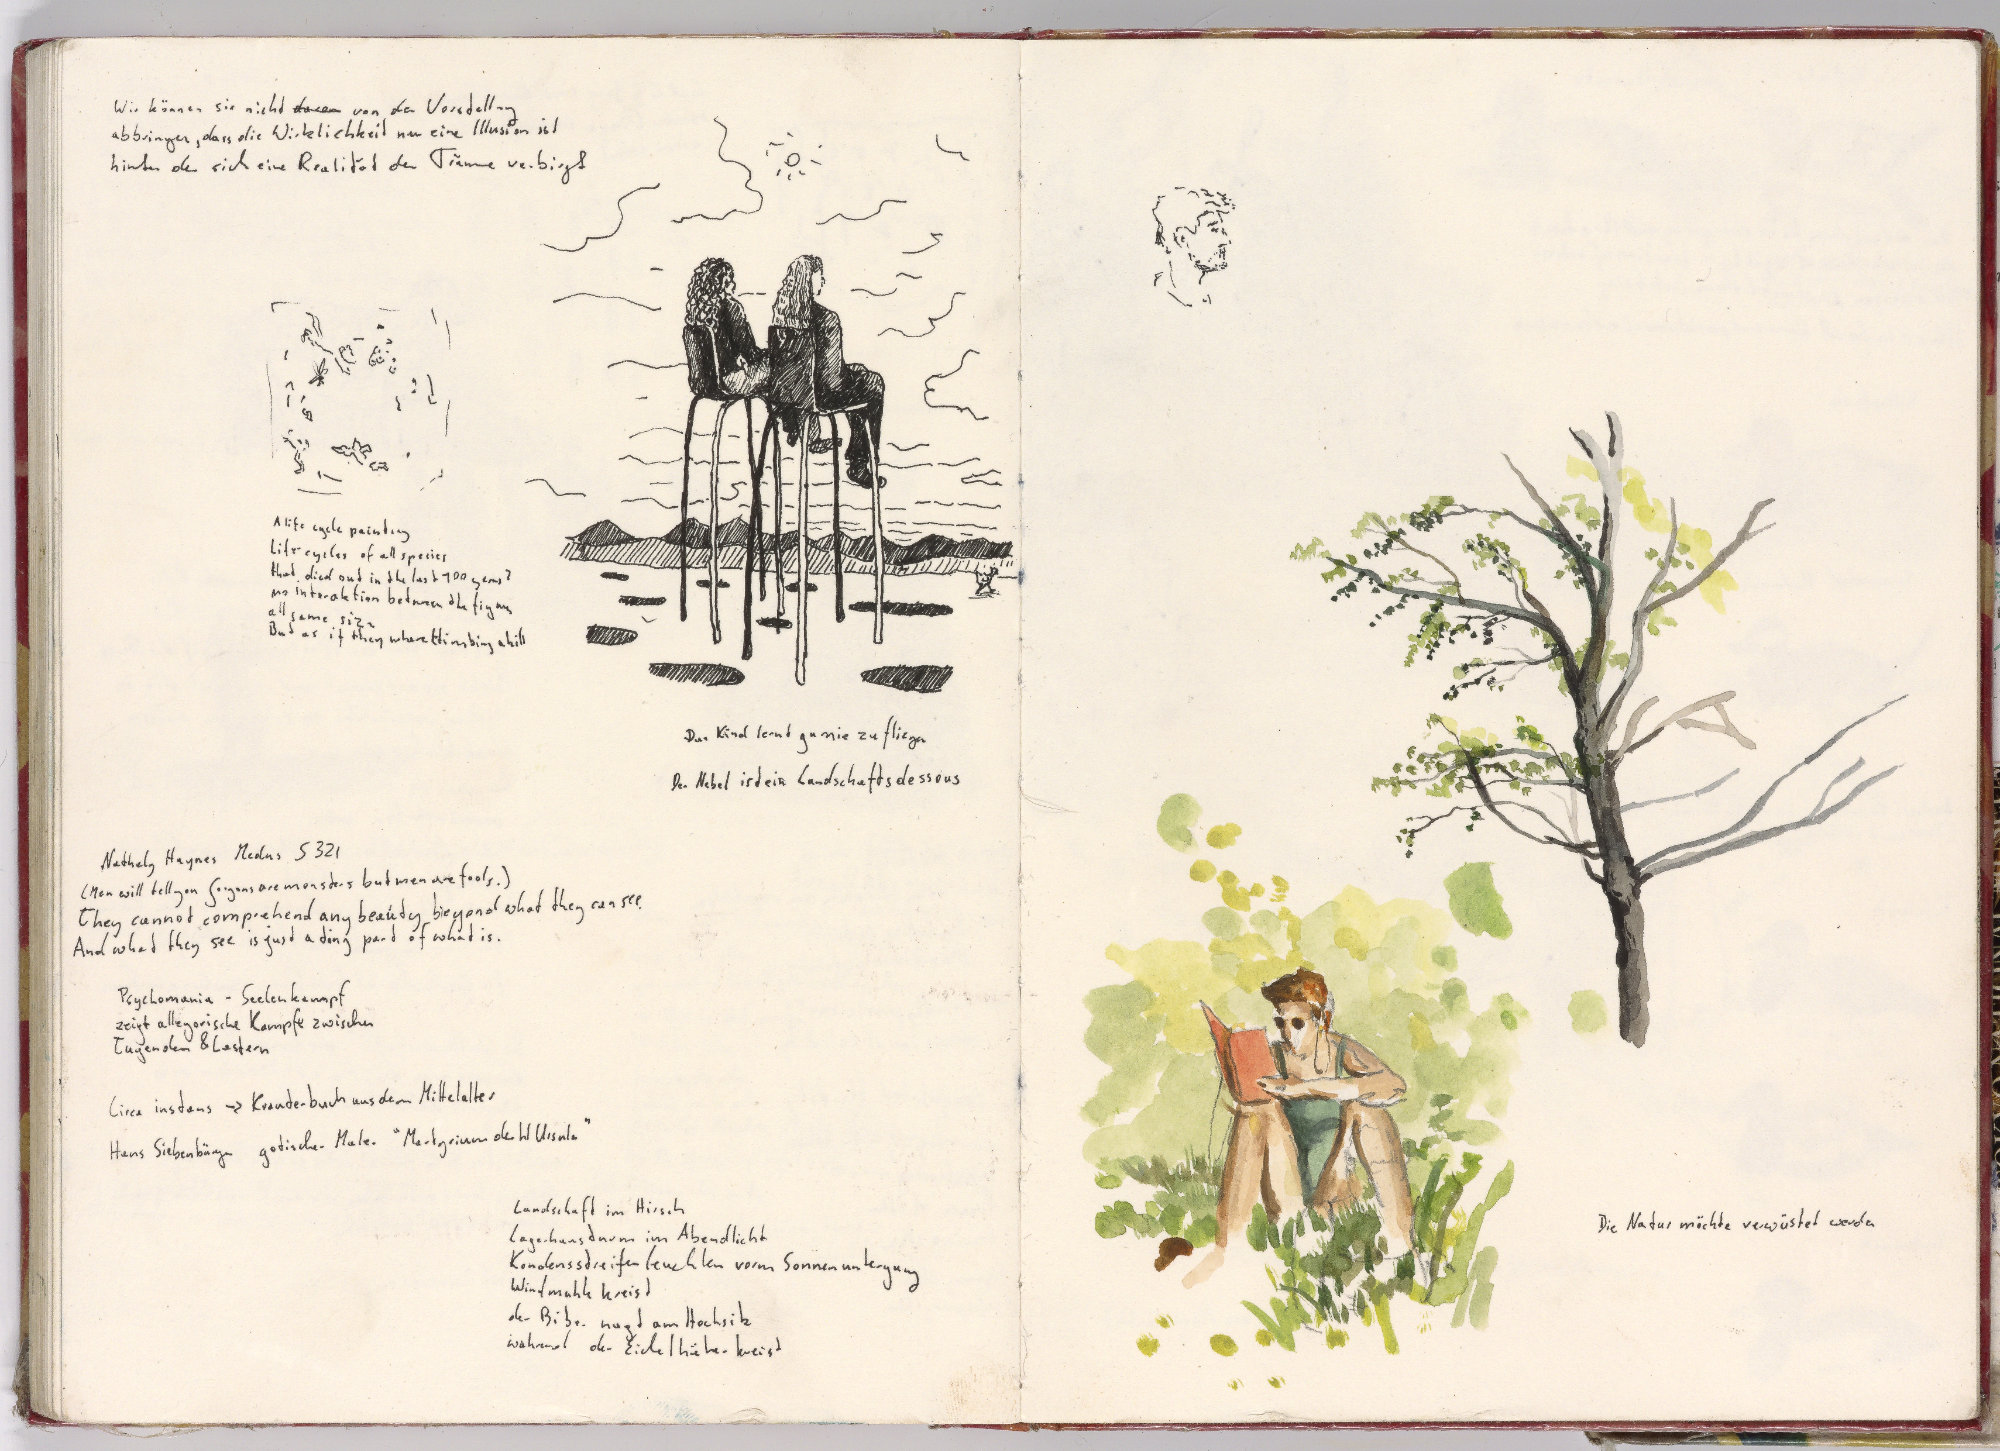 Wir können sie nicht von der Vorstellung
abbringen, dass die Wirklichkeit nur eine Illusion ist
hinter der sich eine Realität der Träume verbirgt
A life cycle painting
Life cycles of all species
that died out in the last 100 years?
no interaktion between the figures
all same size
But as if they where climbing a hill
Das Kind lernt gar nie zu fliegen
Der Nebel ist ein Landschaftsdessous
Nathaly Haynes Medus S 321
(Men will tell you Gorgons are monsters but men are fools.)
They cannot comprehend any beauty beyond what they can see.
And what they see is just a tiny part of what is.
Psychomania - Seelenkampf
zeigt allegorische Kämpfe zwischen
Tugenden & Lastern
Circa instans → Kräuterbuch aus dem Mittelalter
Hans Siebenbürger gotischer Maler "Martyrium der hl Ursula"
Landschaft im Hirsch
Lagerhausturm im Abendlicht
Kondensstreifen leuchten vorm Sonnenuntergang
Windmühle kreist
der Biber nagt am Hochsitz
während der Eichelhäher kreist
Die Natur möchte verwüstet werden